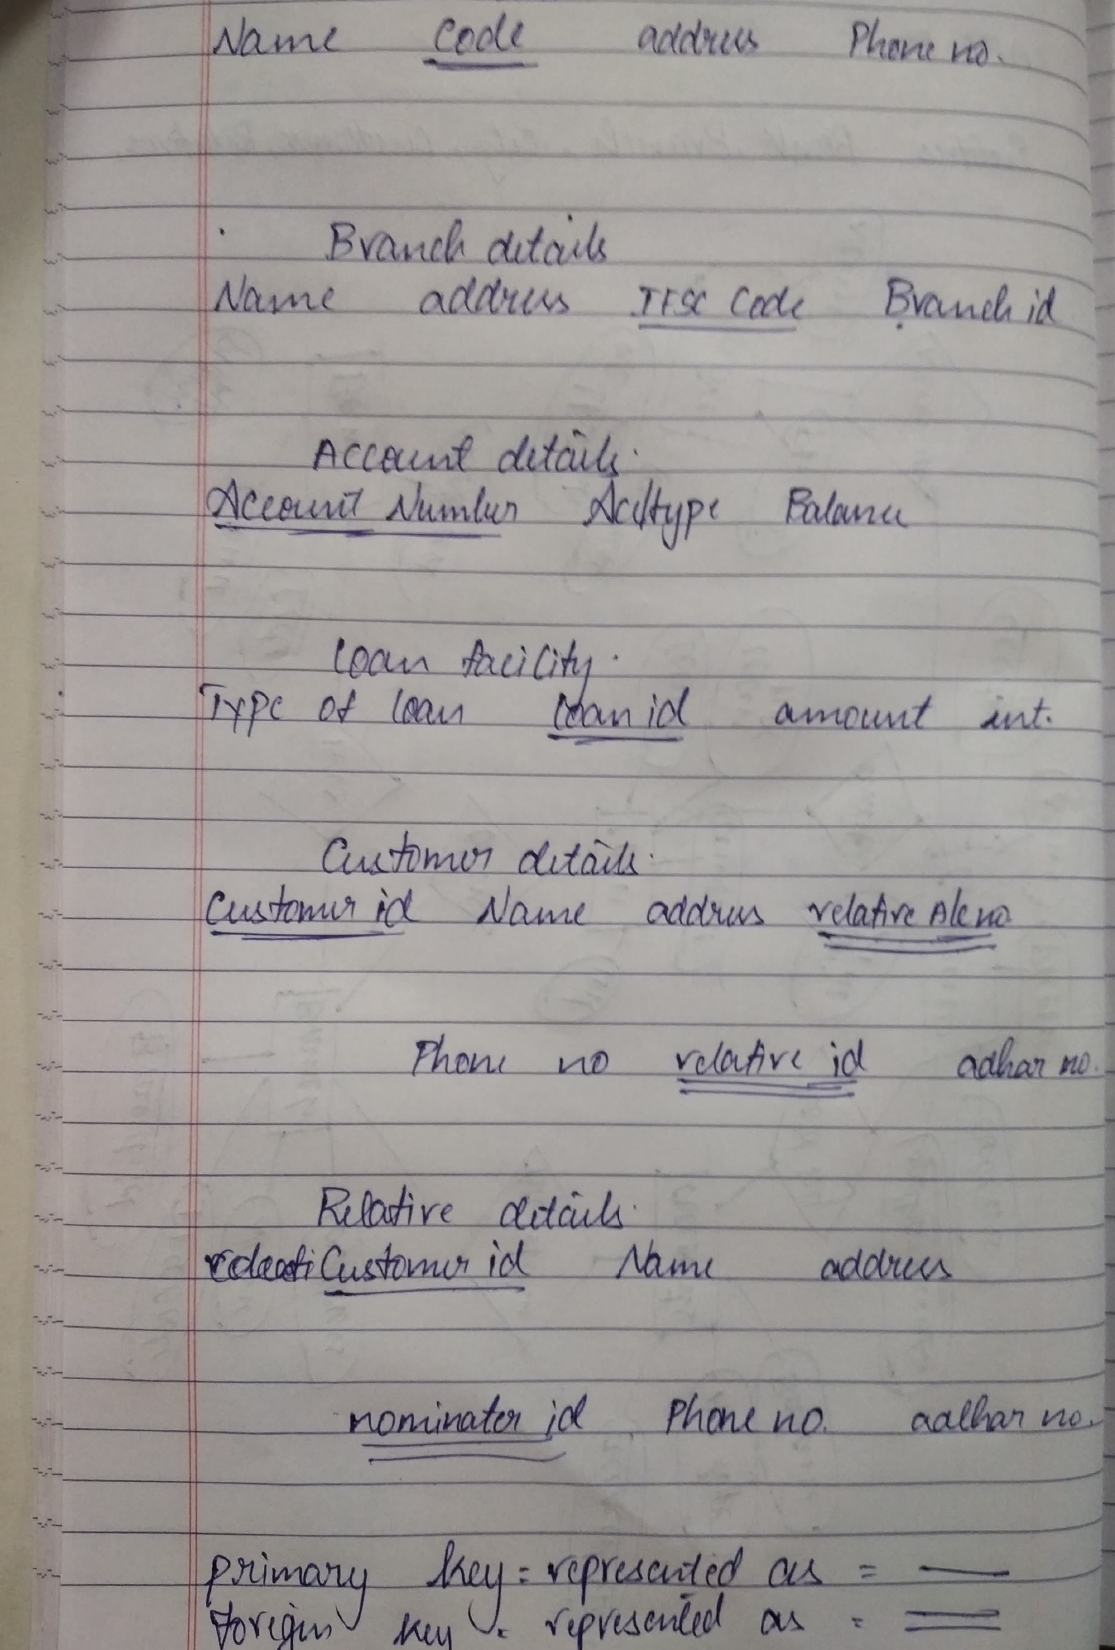 Name Code address Phone no.
Branch details
Name address IFSC Code Branch id
Account details.
Account Number Ac/type Balance
Loan facility.
Type of loan loan id amount int.
Customer details.
Customer id Name address relative A/c no
Phone no relative id adhar no.
Relative details.
Customer id Name address
nominater id Phone no. aadhar no.
primary key = represented as = —
foregin key = represented as = =